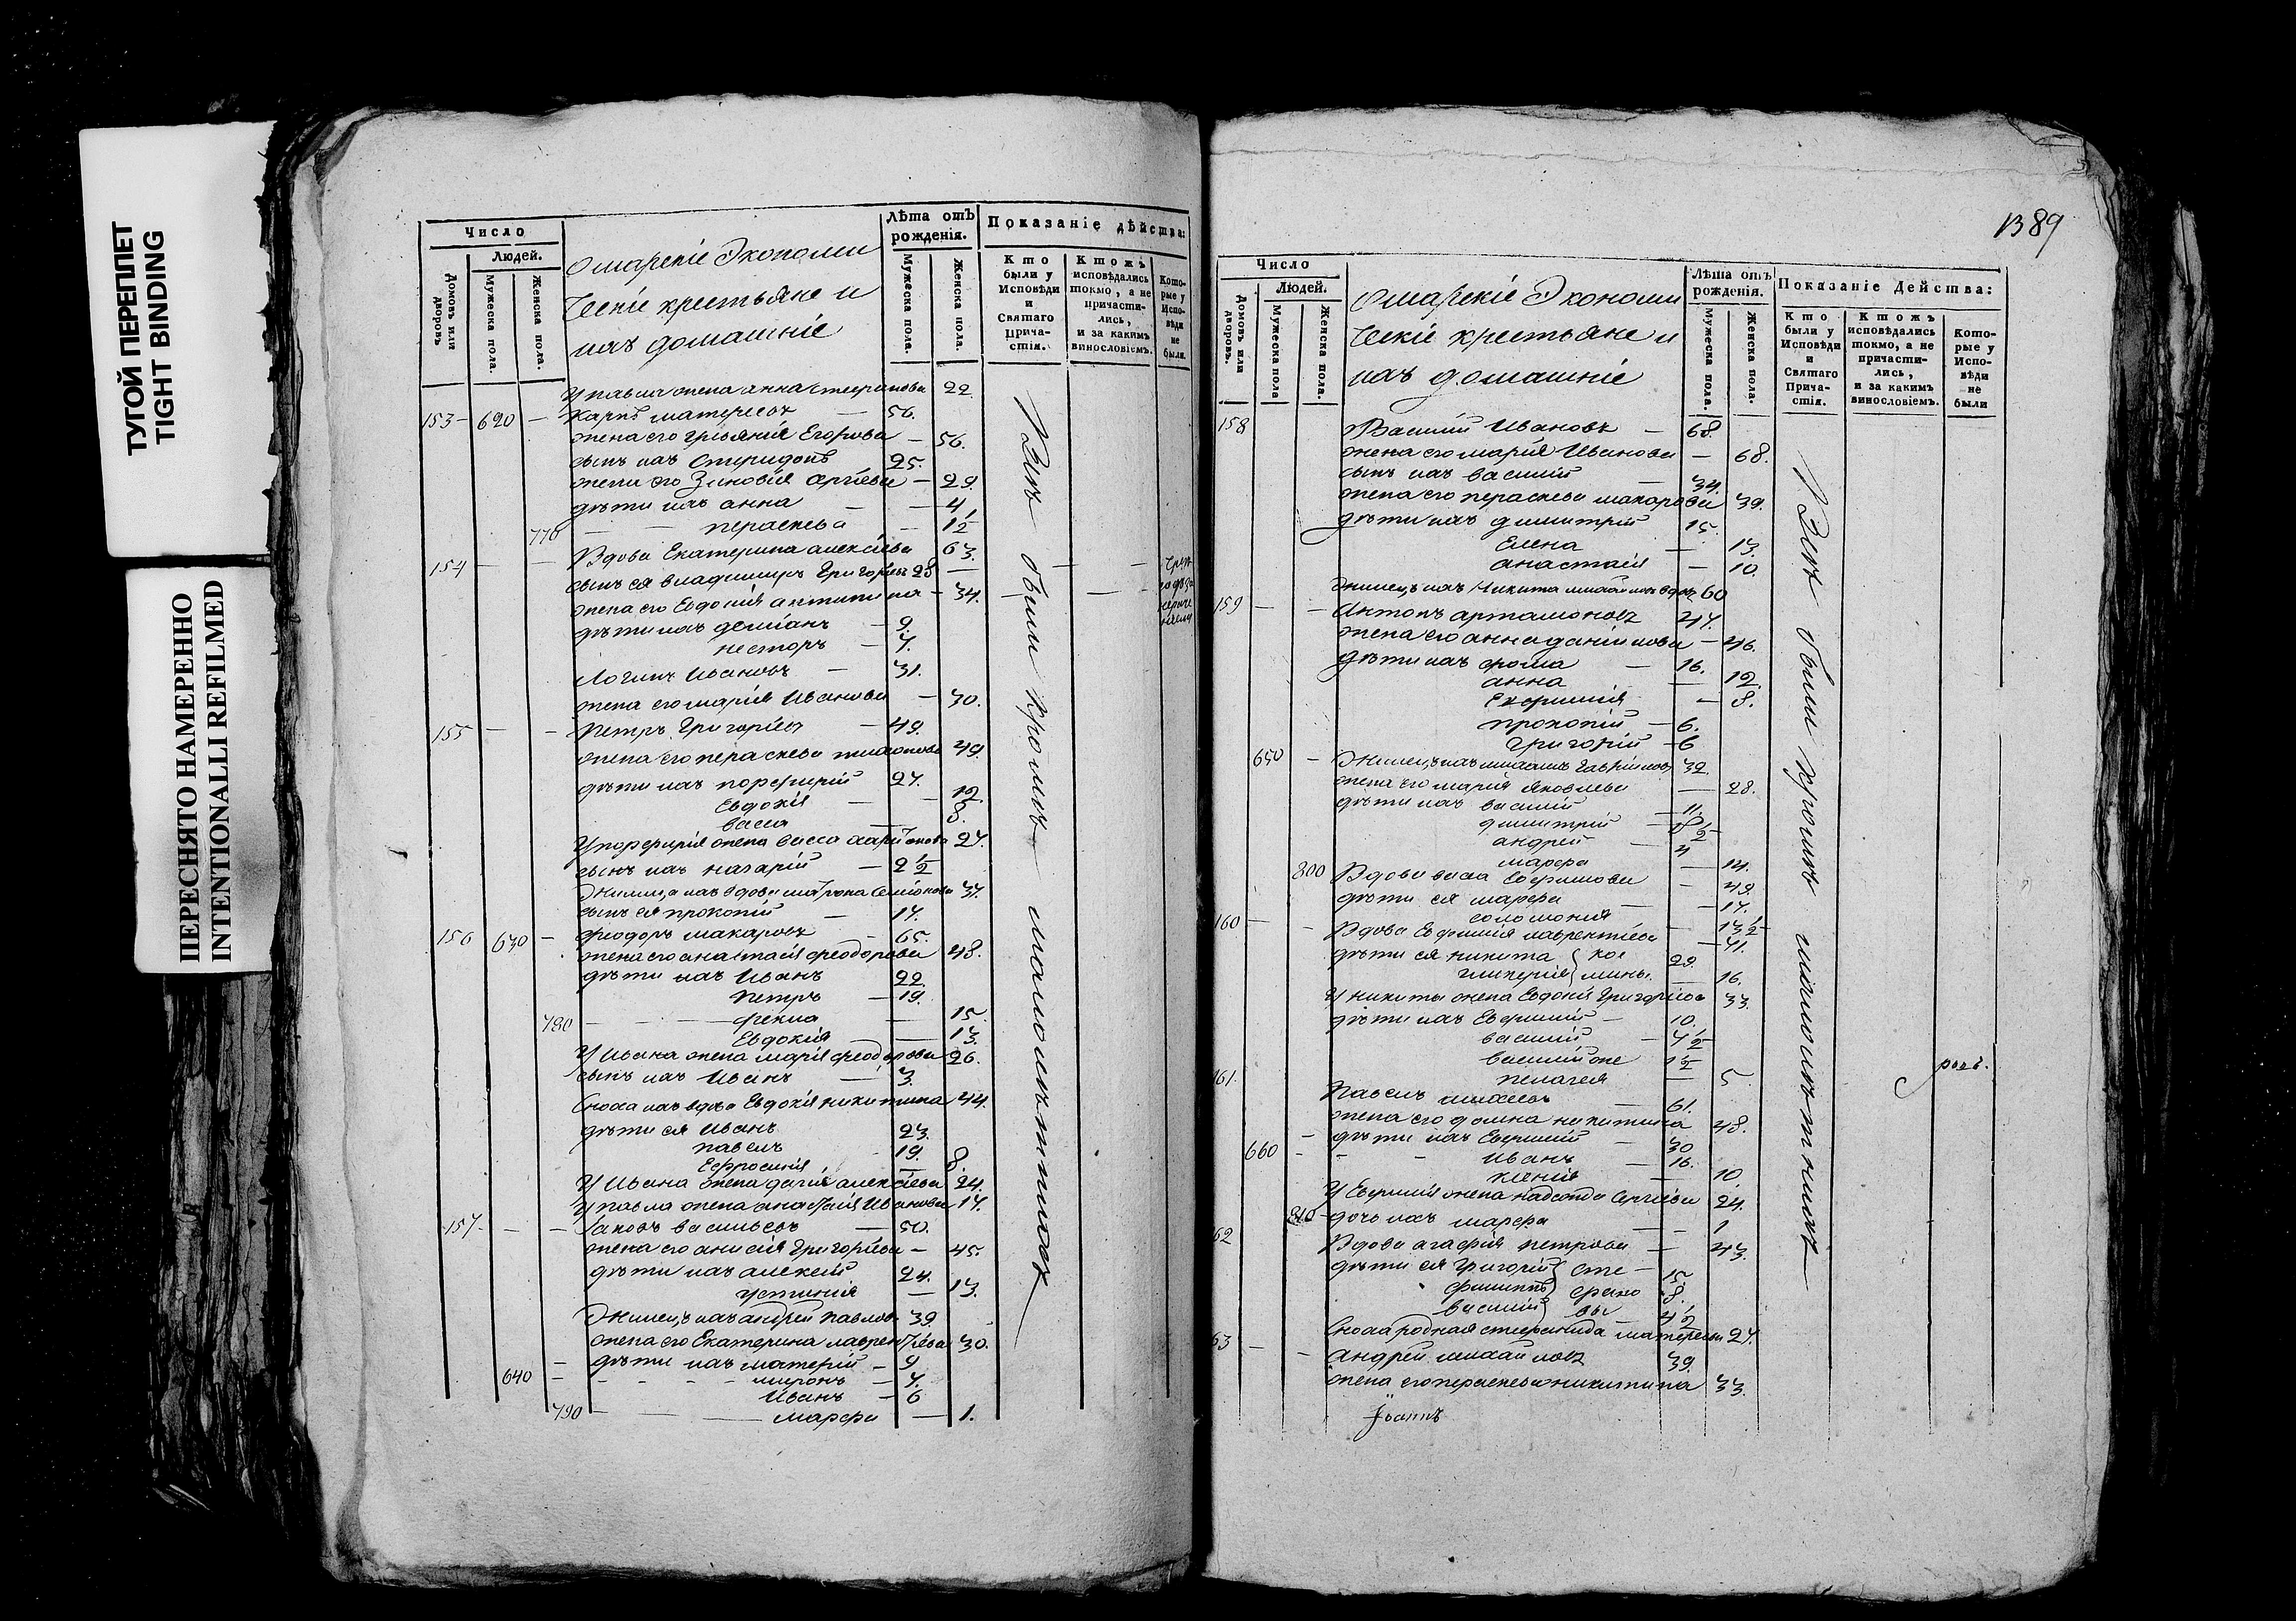 ТУГОЙ ПЕРЕПЛЕТ
TIGHT BINDING
ПЕРЕСНЯТО НАМЕРЕННО
INTENTIONALLI REFILMED
Число
Людей.
Домовъ или дворовъ
Мужеска пола.
Женска пола.
Экономи
ческіе крестьяне и
ихъ домашніе
Лѣта отъ рожденія.
Мужеска пола.
Женска пола.
Показаніе дѣйства:
Кто были у Исповѣди и Святаго Причастія.
Ктожъ исповѣдались токмо, а не причастились, и за какимъ винословіемъ.
Которые у Исповѣди не были.
У павла жена анна стефанова 22.
153 – 620 – Карпъ матѳеевъ – 56.
жена его Егорова – 56.
сынъ ихъ спиридонъ 25.
жена его Зиновія сергіева – 29.
дѣти ихъ анна – 4
770 параскева – 1½
154 – Вдова Екатерина алексіева 63.
сынъ ея владимиръ Григорьевъ 28
жена его Евдокія – 34.
дѣти ихъ даміанъ – 9.
несторъ – 7.
Логинъ Ивановъ – 31.
жена его марія Иванова – 30.
155 – Петръ Григорьевъ – 49.
жена его параскева 49.
дѣти ихъ порфирій 27.
Евдокія – 12.
васса – 8.
У порфирія жена васса харитонова 27.
сынъ ихъ назарій – 2½
Жилица ихъ вдова матрона Семіонова 37.
сынъ ея прокопій – 17.
156 630 – Феодоръ макаровъ – 65.
жена его анастасія феодорова 48.
дѣти ихъ Иванъ 22.
Петръ – 19.
780 – фекла – 15.
Евдокія – 13.
У Ивана жена марія феодорова 26.
сынъ ихъ Иванъ – 3.
Сноха ихъ вдова Евдокія никитина 44.
дѣти ея Иванъ 23.
павелъ 19.
Ефросинія – 8.
У Ивана жена дарія алексіева 24.
У павла жена анастасія Иванова 17.
157 – Іаковъ васильевъ – 50.
жена его анисія Григоріева – 45.
дѣти ихъ алексій 24.
устинія – 13.
Жилецъ ихъ андрей павловъ 39.
жена его Екатерина лаврентіева 30.
дѣти ихъ – 9
640 миронъ – 7.
Иванъ – 6
790 – марфа – 1.
Всѣ были кромѣ малолѣтныхъ
1389
Число
Людей.
Домовъ или дворовъ.
Мужеска пола
Женска пола.
Экономи
ческіе крестьяне и
ихъ домашніе
Лѣта отъ рожденія.
Мужеска пола.
Женска пола.
Показаніе Действа:
Кто были у Исповѣди и Святаго Причастія.
Ктожъ исповѣдались токмо, а не причастились, и за какимъ винословіемъ.
Которые у Исповѣди не были
158 Василій Ивановъ – 68.
жена его марія Иванова – 68.
сынъ ихъ василій – 34.
жена его параскева макарова 39.
дѣти ихъ димитрій 15.
Елена – 13.
анастасія – 10.
Жилецъ ихъ Никита вдовъ 60
159 – Антонъ артамоновъ 47.
жена его анна данилова – 46.
дѣти ихъ фома – 16.
анна – 12.
Евфимія – 8.
прокопій – 6.
григорій – 6
650 – Жилецъ ихъ михаилъ гавриловъ 32.
жена его марія яковлева – 28.
дѣти ихъ василій – 11
димитрій
андрей – 4
марфа – 14.
800 Вдова васса Евфимова – 49.
дѣти ея марфа – 17.
соломонія – 13½
160 – Вдова Евфимія лаврентіева – 41.
дѣти ея никита 29.
16.
У никиты жена Евдокія Григоріева 33.
дѣти ихъ Евфимій – 10.
василій – 4½
василій же 1½
пелагея – 5
161. Павелъ 61.
жена его домна никитина 48.
дѣти ихъ Евфимій – 30
660 Иванъ – 16.
ксенія – 10.
У Евфимія жена Сергіева 24.
810 дочь ихъ марфа – 1
62 Вдова агафія петрова – 43.
дѣти ея Григорій 15.
филиппъ 8.
василій 4½
Сноха родная стефанида матѳеева 27.
63 – Андрей михайловъ 39.
жена его параскева никитина 33.
Іоаннъ
Всѣ были кромѣ малолѣтныхъ